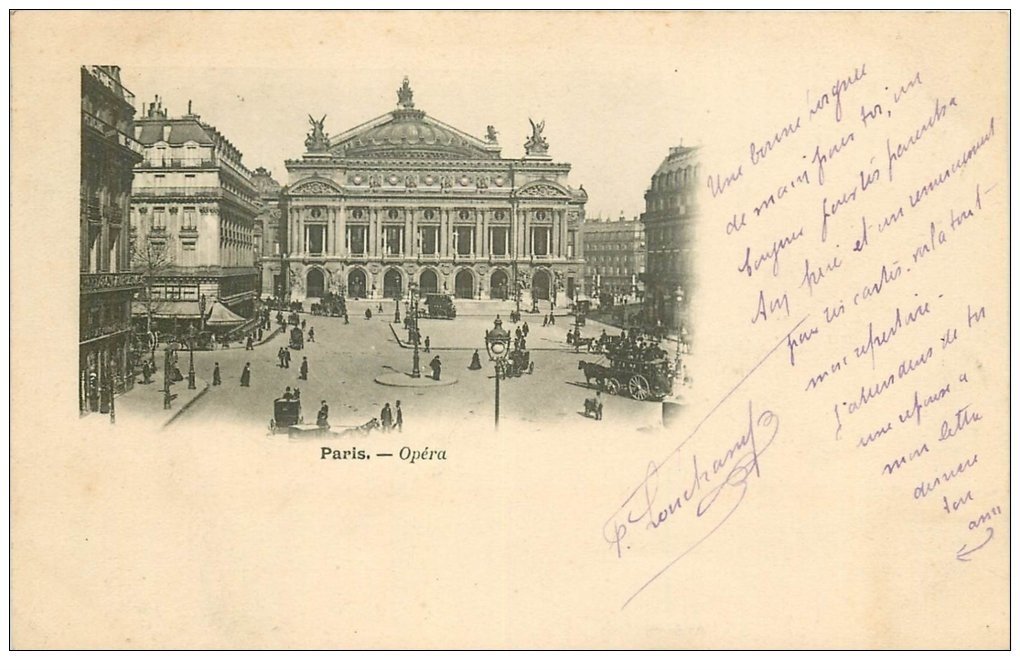 Paris. — Opéra
Une bonne poignée
de main pour toi, un
bonjour pour tes parents a
ton père et un remerciement
pour tes cartes. voila tout
mon repertoire.
J'attends de toi
une reponse a
mon lettre
derniere
ton
ami